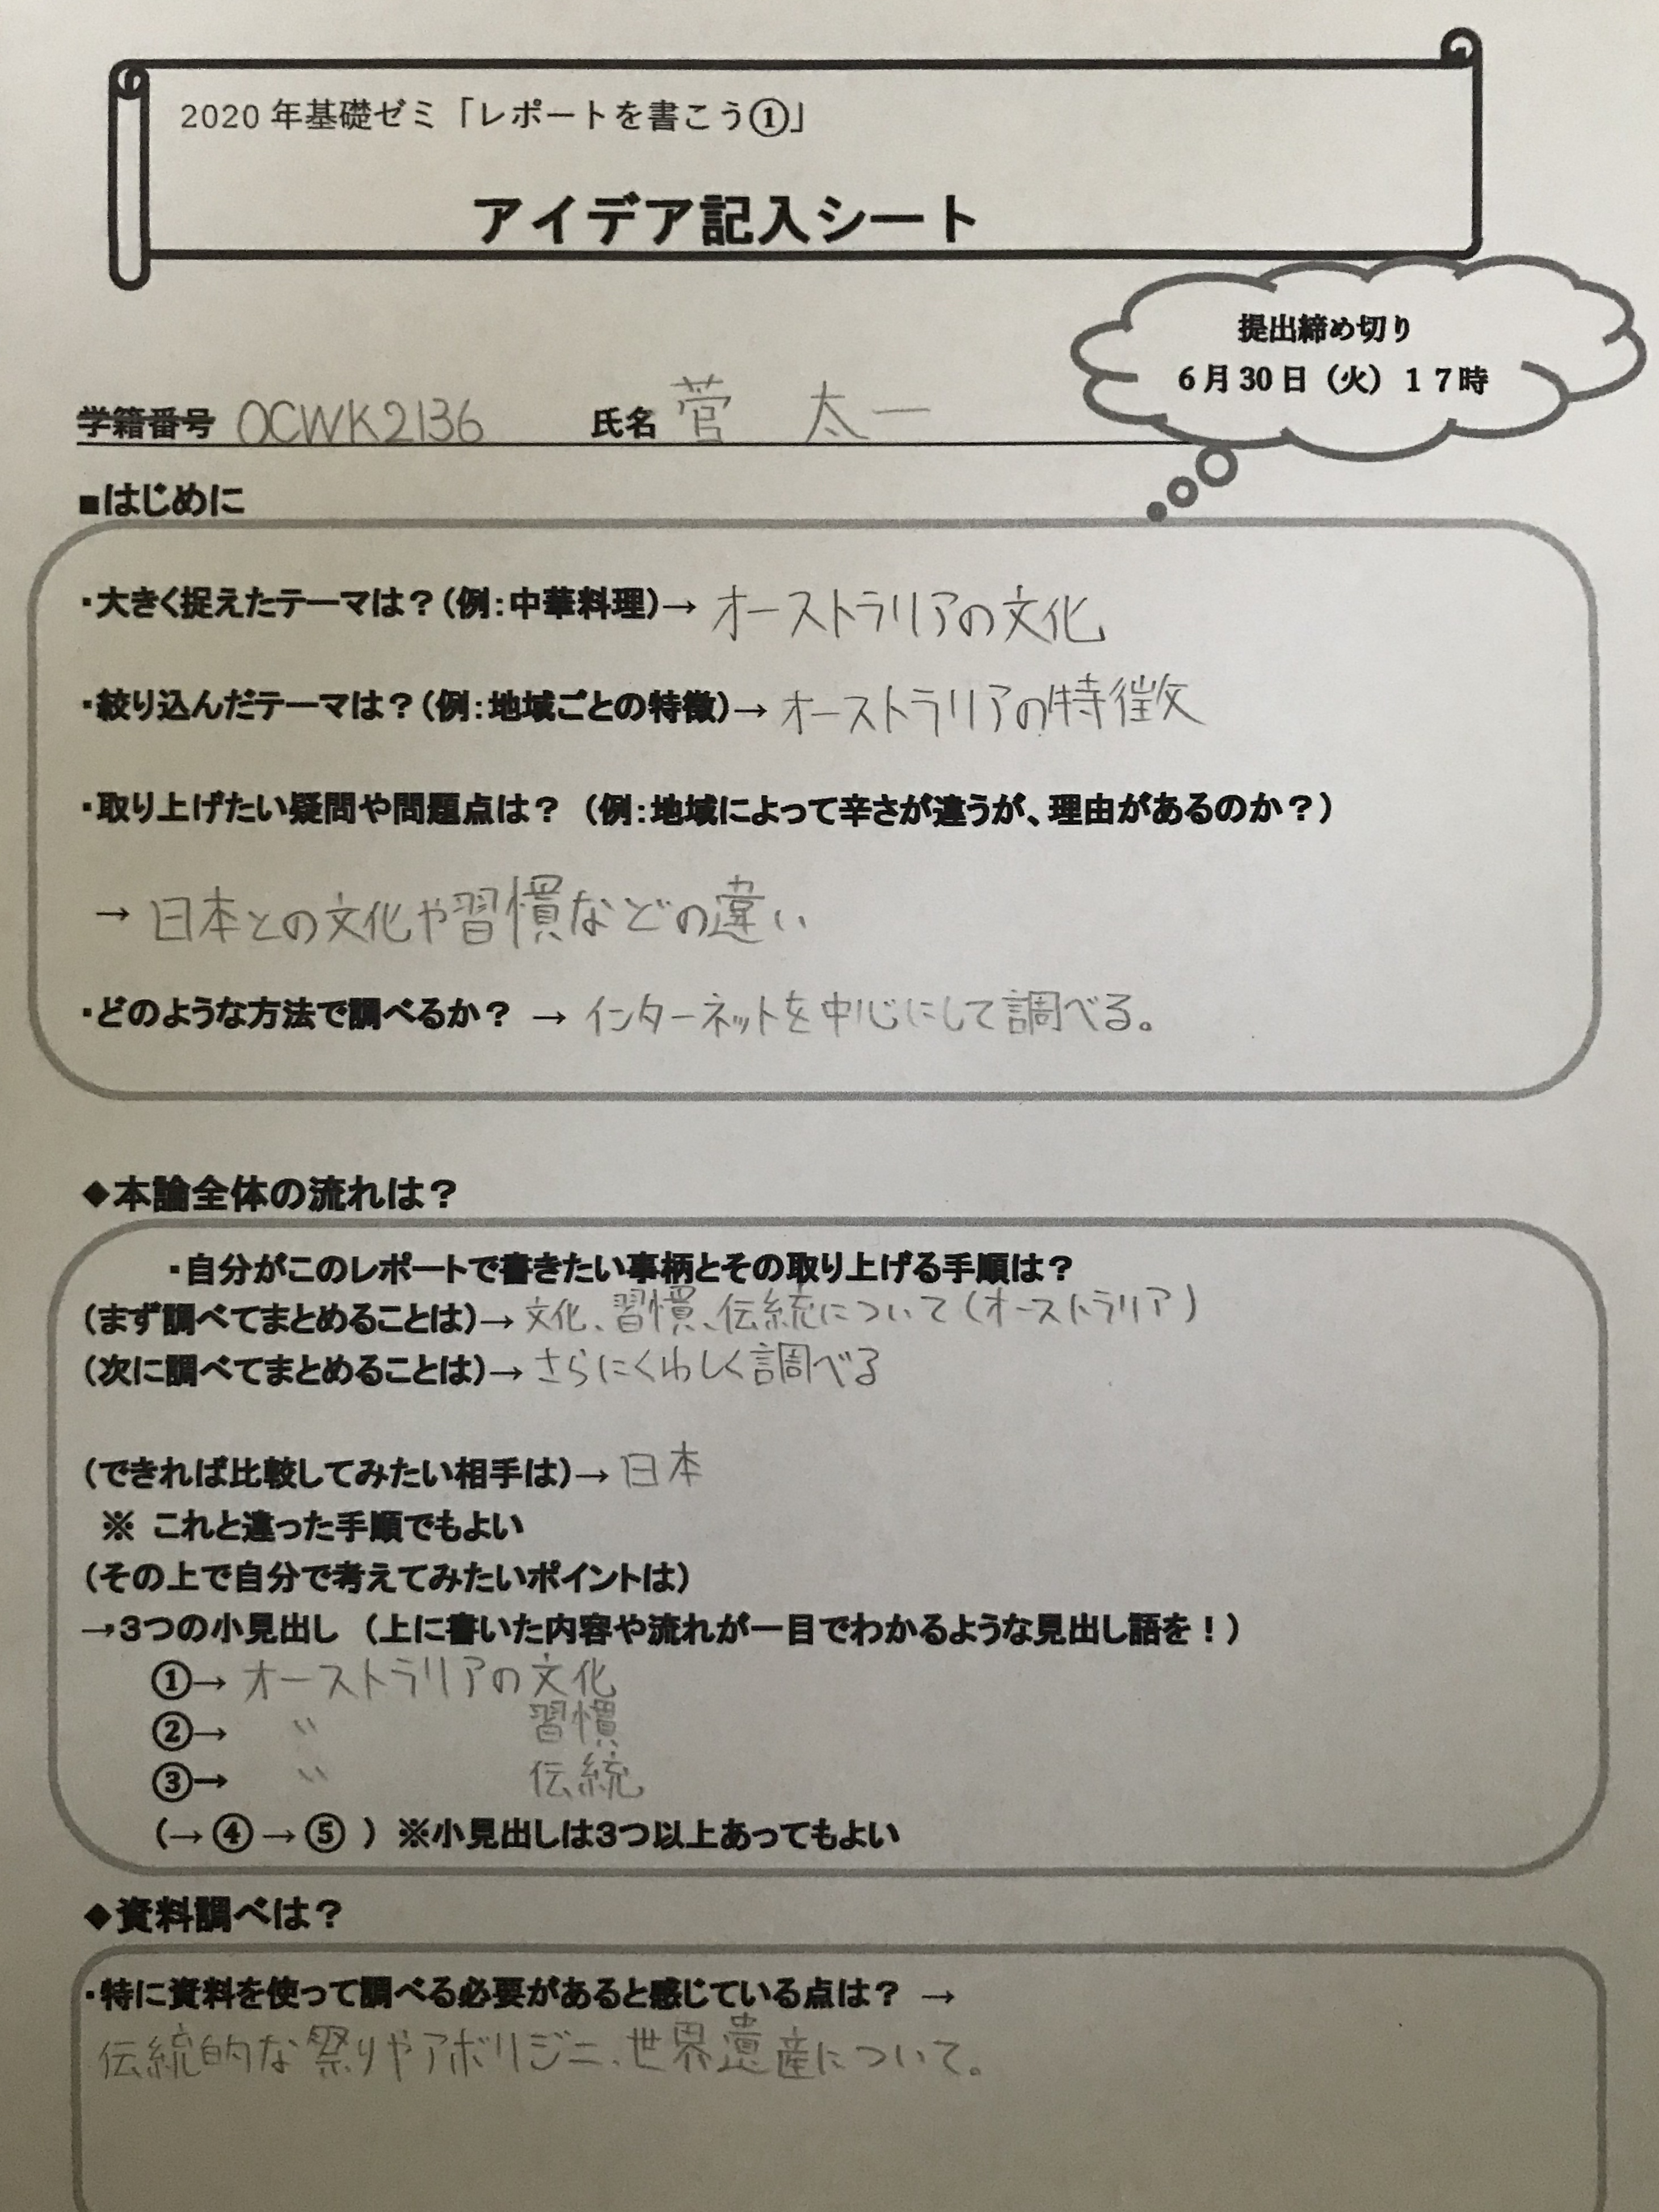 2020年基礎ゼミ「レポートを書こう①」
アイデア記入シート
提出締め切り
6月30日（火）17時
学籍番号 OCWK2136 氏名 菅 太一
■はじめに
・大きく捉えたテーマは？（例：中華料理）→ オーストラリアの文化
・絞り込んだテーマは？（例：地域ごとの特徴）→ オーストラリアの特徴
・取り上げたい疑問や問題点は？ （例：地域によって辛さが違うが、理由があるのか？）
→ 日本との文化や習慣などの違い
・どのような方法で調べるか？ → インターネットを中心にして調べる。
◆本論全体の流れは？
・自分がこのレポートで書きたい事柄とその取り上げる手順は？
（まず調べてまとめることは）→ 文化、習慣、伝統について（オーストラリア）
（次に調べてまとめることは）→ さらにくわしく調べる
（できれば比較してみたい相手は）→ 日本
※ これと違った手順でもよい
（その上で自分で考えてみたいポイントは）
→3つの小見出し （上に書いた内容や流れが一目でわかるような見出し語を！）
①→ オーストラリアの文化
②→ 〃 習慣
③→ 〃 伝統
（→④→⑤ ）※小見出しは3つ以上あってもよい
◆資料調べは？
・特に資料を使って調べる必要があると感じている点は？ →
伝統的な祭りやアボリジニ、世界遺産について。